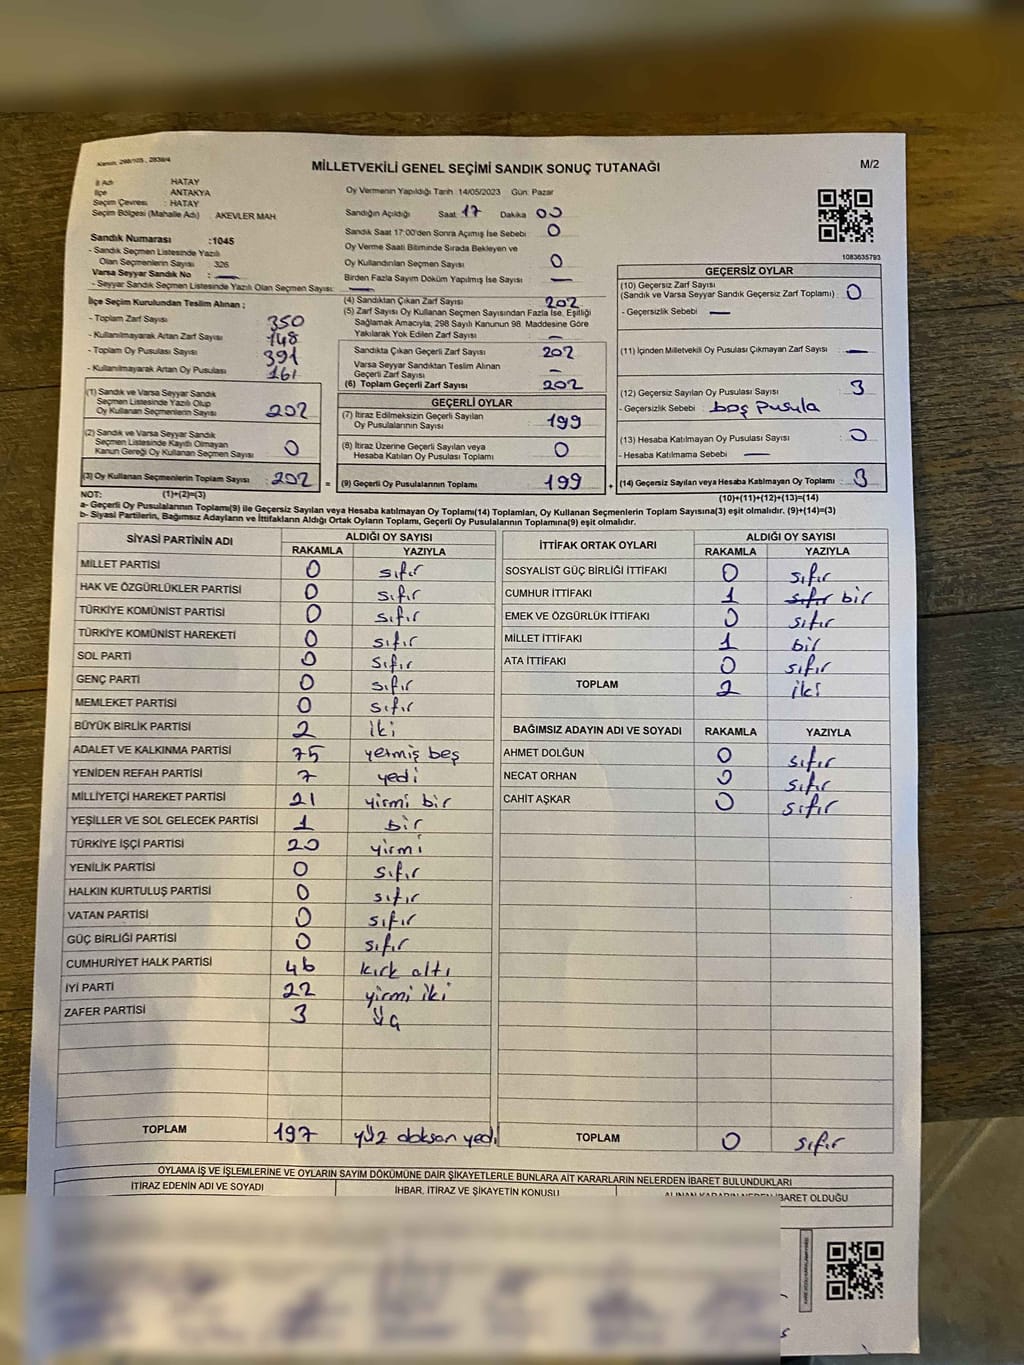 Kanun, 298/105 , 2839/4
M/2
MİLLETVEKİLİ GENEL SEÇİMİ SANDIK SONUÇ TUTANAĞI
İl Adı HATAY
İlçe ANTAKYA
Seçim Çevresi : HATAY
Seçim Bölgesi (Mahalle Adı) : AKEVLER MAH
Sandık Numarası :1045
- Sandık Seçmen Listesinde Yazılı
Olan Seçmenlerin Sayısı 326
Varsa Seyyar Sandık No : —
- Seyyar Sandık Seçmen Listesinde Yazılı Olan Seçmen Sayısı: —
Oy Vermenin Yapıldığı Tarih :14/05/2023 Gün: Pazar
Sandığın Açıldığı Saat 17 Dakika 00
Sandık Saat 17:00'den Sonra Açımış İse Sebebi 0
Oy Verme Saati Bitiminde Sırada Bekleyen ve
Oy Kullandırılan Seçmen Sayısı 0
Birden Fazla Sayım Döküm Yapılmış İse Sayısı —
1083635793
İlçe Seçim Kurulundan Teslim Alınan ;
- Toplam Zarf Sayısı 350
- Kullanılmayarak Artan Zarf Sayısı 148
- Toplam Oy Pusulası Sayısı 391
- Kullanılmayarak Artan Oy Pusulası 161
(1) Sandık ve Varsa Seyyar Sandık
Seçmen Listesinde Yazılı Olup
Oy Kullanan Seçmenlerin Sayısı 202
(2) Sandık ve Varsa Seyyar Sandık
Seçmen Listesinde Kayıtlı Olmayan
Kanun Gereği Oy Kullanan Seçmen Sayısı 0
(3) Oy Kullanan Seçmenlerin Toplam Sayısı : 202 =
(4) Sandıktan Çıkan Zarf Sayısı 202
(5) Zarf Sayısı Oy Kullanan Seçmen Sayısından Fazla İse, Eşitliği
Sağlamak Amacıyla, 298 Sayılı Kanunun 98. Maddesine Göre
Yakılarak Yok Edilen Zarf Sayısı —
Sandıkta Çıkan Geçerli Zarf Sayısı 202
Varsa Seyyar Sandıktan Teslim Alınan
Geçerli Zarf Sayısı —
(6) Toplam Geçerli Zarf Sayısı 202
GEÇERLİ OYLAR
(7) İtiraz Edilmeksizin Geçerli Sayılan
Oy Pusulalarının Sayısı 199
(8) İtiraz Üzerine Geçerli Sayılan veya
Hesaba Katılan Oy Pusulası Toplamı 0
(9) Geçerli Oy Pusulalarının Toplamı 199 +
GEÇERSİZ OYLAR
(10) Geçersiz Zarf Sayısı
(Sandık ve Varsa Seyyar Sandık Geçersiz Zarf Toplamı) : 0
- Geçersizlik Sebebi : —
(11) İçinden Milletvekili Oy Pusulası Çıkmayan Zarf Sayısı : —
(12) Geçersiz Sayılan Oy Pusulası Sayısı 3
- Geçersizlik Sebebi : boş pusula
(13) Hesaba Katılmayan Oy Pusulası Sayısı : 0
- Hesaba Katılmama Sebebi : —
(14) Geçersiz Sayılan veya Hesaba Katılmayan Oy Toplamı : 3
NOT: (1)+(2)=(3) (10)+(11)+(12)+(13)=(14)
a- Geçerli Oy Pusulalarının Toplamı(9) ile Geçersiz Sayılan veya Hesaba katılmayan Oy Toplamı(14) Toplamları, Oy Kullanan Seçmenlerin Toplam Sayısına(3) eşit olmalıdır. (9)+(14)=(3)
b- Siyasi Partilerin, Bağımsız Adayların ve İttifakların Aldığı Ortak Oyların Toplamı, Geçerli Oy Pusulalarının Toplamına(9) eşit olmalıdır.
SİYASİ PARTİNİN ADI ALDIĞI OY SAYISI
RAKAMLA YAZIYLA
MİLLET PARTİSİ 0 sıfır
HAK VE ÖZGÜRLÜKLER PARTİSİ 0 sıfır
TÜRKİYE KOMÜNİST PARTİSİ 0 sıfır
TÜRKİYE KOMÜNİST HAREKETİ 0 sıfır
SOL PARTİ 0 sıfır
GENÇ PARTİ 0 sıfır
MEMLEKET PARTİSİ 0 sıfır
BÜYÜK BİRLİK PARTİSİ 2 iki
ADALET VE KALKINMA PARTİSİ 75 yetmiş beş
YENİDEN REFAH PARTİSİ 7 yedi
MİLLİYETÇİ HAREKET PARTİSİ 21 yirmi bir
YEŞİLLER VE SOL GELECEK PARTİSİ 1 bir
TÜRKİYE İŞÇİ PARTİSİ 20 yirmi
YENİLİK PARTİSİ 0 sıfır
HALKIN KURTULUŞ PARTİSİ 0 sıfır
VATAN PARTİSİ 0 sıfır
GÜÇ BİRLİĞİ PARTİSİ 0 sıfır
CUMHURİYET HALK PARTİSİ 46 kırk altı
İYİ PARTİ 22 yirmi iki
ZAFER PARTİSİ 3 üç
TOPLAM 197 yüz doksan yedi
İTTİFAK ORTAK OYLARI ALDIĞI OY SAYISI
RAKAMLA YAZIYLA
SOSYALIST GÜÇ BİRLİĞİ İTTİFAKI 0 sıfır
CUMHUR İTTİFAKI 1 sıfır bir
EMEK VE ÖZGÜRLÜK İTTİFAKI 0 sıfır
MİLLET İTTİFAKI 1 bir
ATA İTTİFAKI 0 sıfır
TOPLAM 2 iki
BAĞIMSIZ ADAYIN ADI VE SOYADI RAKAMLA YAZIYLA
AHMET DOLĞUN 0 sıfır
NECAT ORHAN 0 sıfır
CAHİT AŞKAR 0 sıfır
TOPLAM 0 sıfır
OYLAMA İŞ VE İŞLEMLERİNE VE OYLARIN SAYIM DÖKÜMÜNE DAİR ŞİKAYETLERLE BUNLARA AİT KARARLARIN NELERDEN İBARET BULUNDUKLARI
İTİRAZ EDENİN ADI VE SOYADI İHBAR, İTİRAZ VE ŞİKAYETİN KONUSU İBARET OLDUĞU